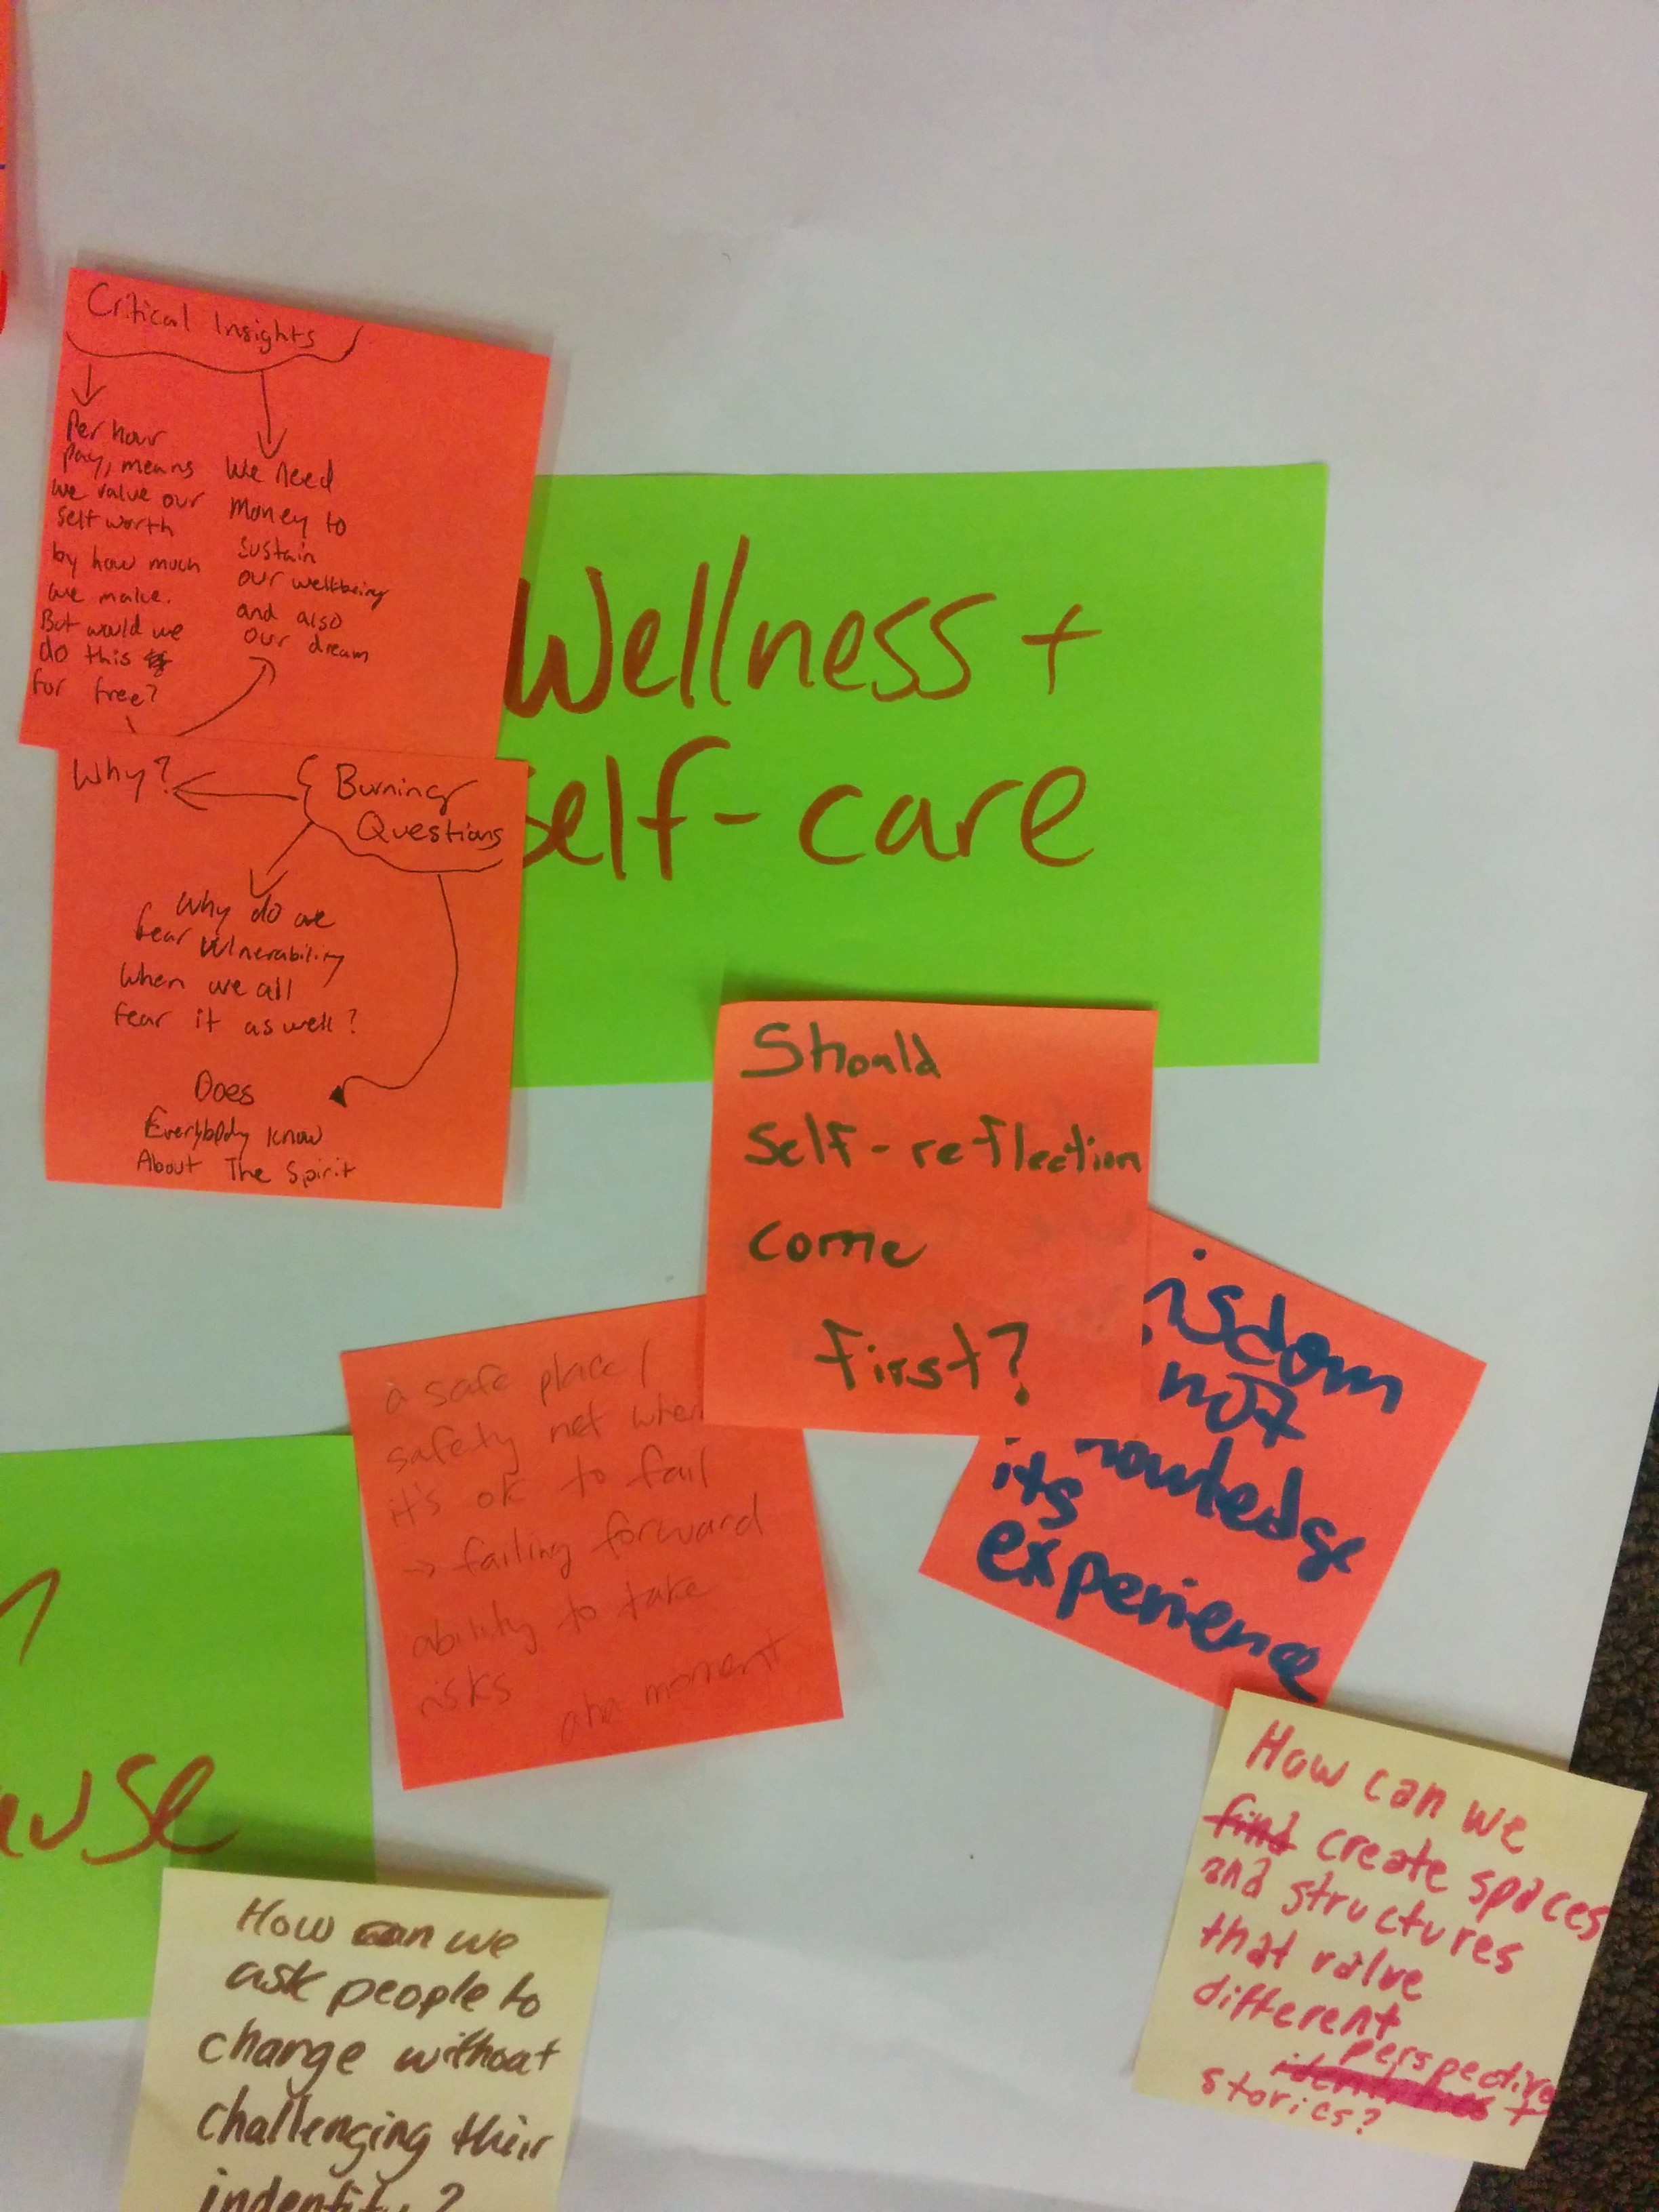 Critical Insights
Per hour
pay, means
we value our
self worth
by how much
we make.
But would we
do this
for free?
We need
money to
sustain
our wellbeing
and also
our dream
Why?
Burning
Questions
Why do we
fear Vulnerability
when we all
fear it as well?
Does
Everybody know
About The Spirit
Wellness +
self-care
Should
Self-reflection
come
first?
a safe place /
safety net when
it's ok to fail
→ failing forward
ability to take
risks
aha moment
isdom
not
nowledge
its
experience
How can we
find create spaces
and structures
that value
different
perspective
identities +
stories?
How can we
ask people to
change without
challenging their
indentity?